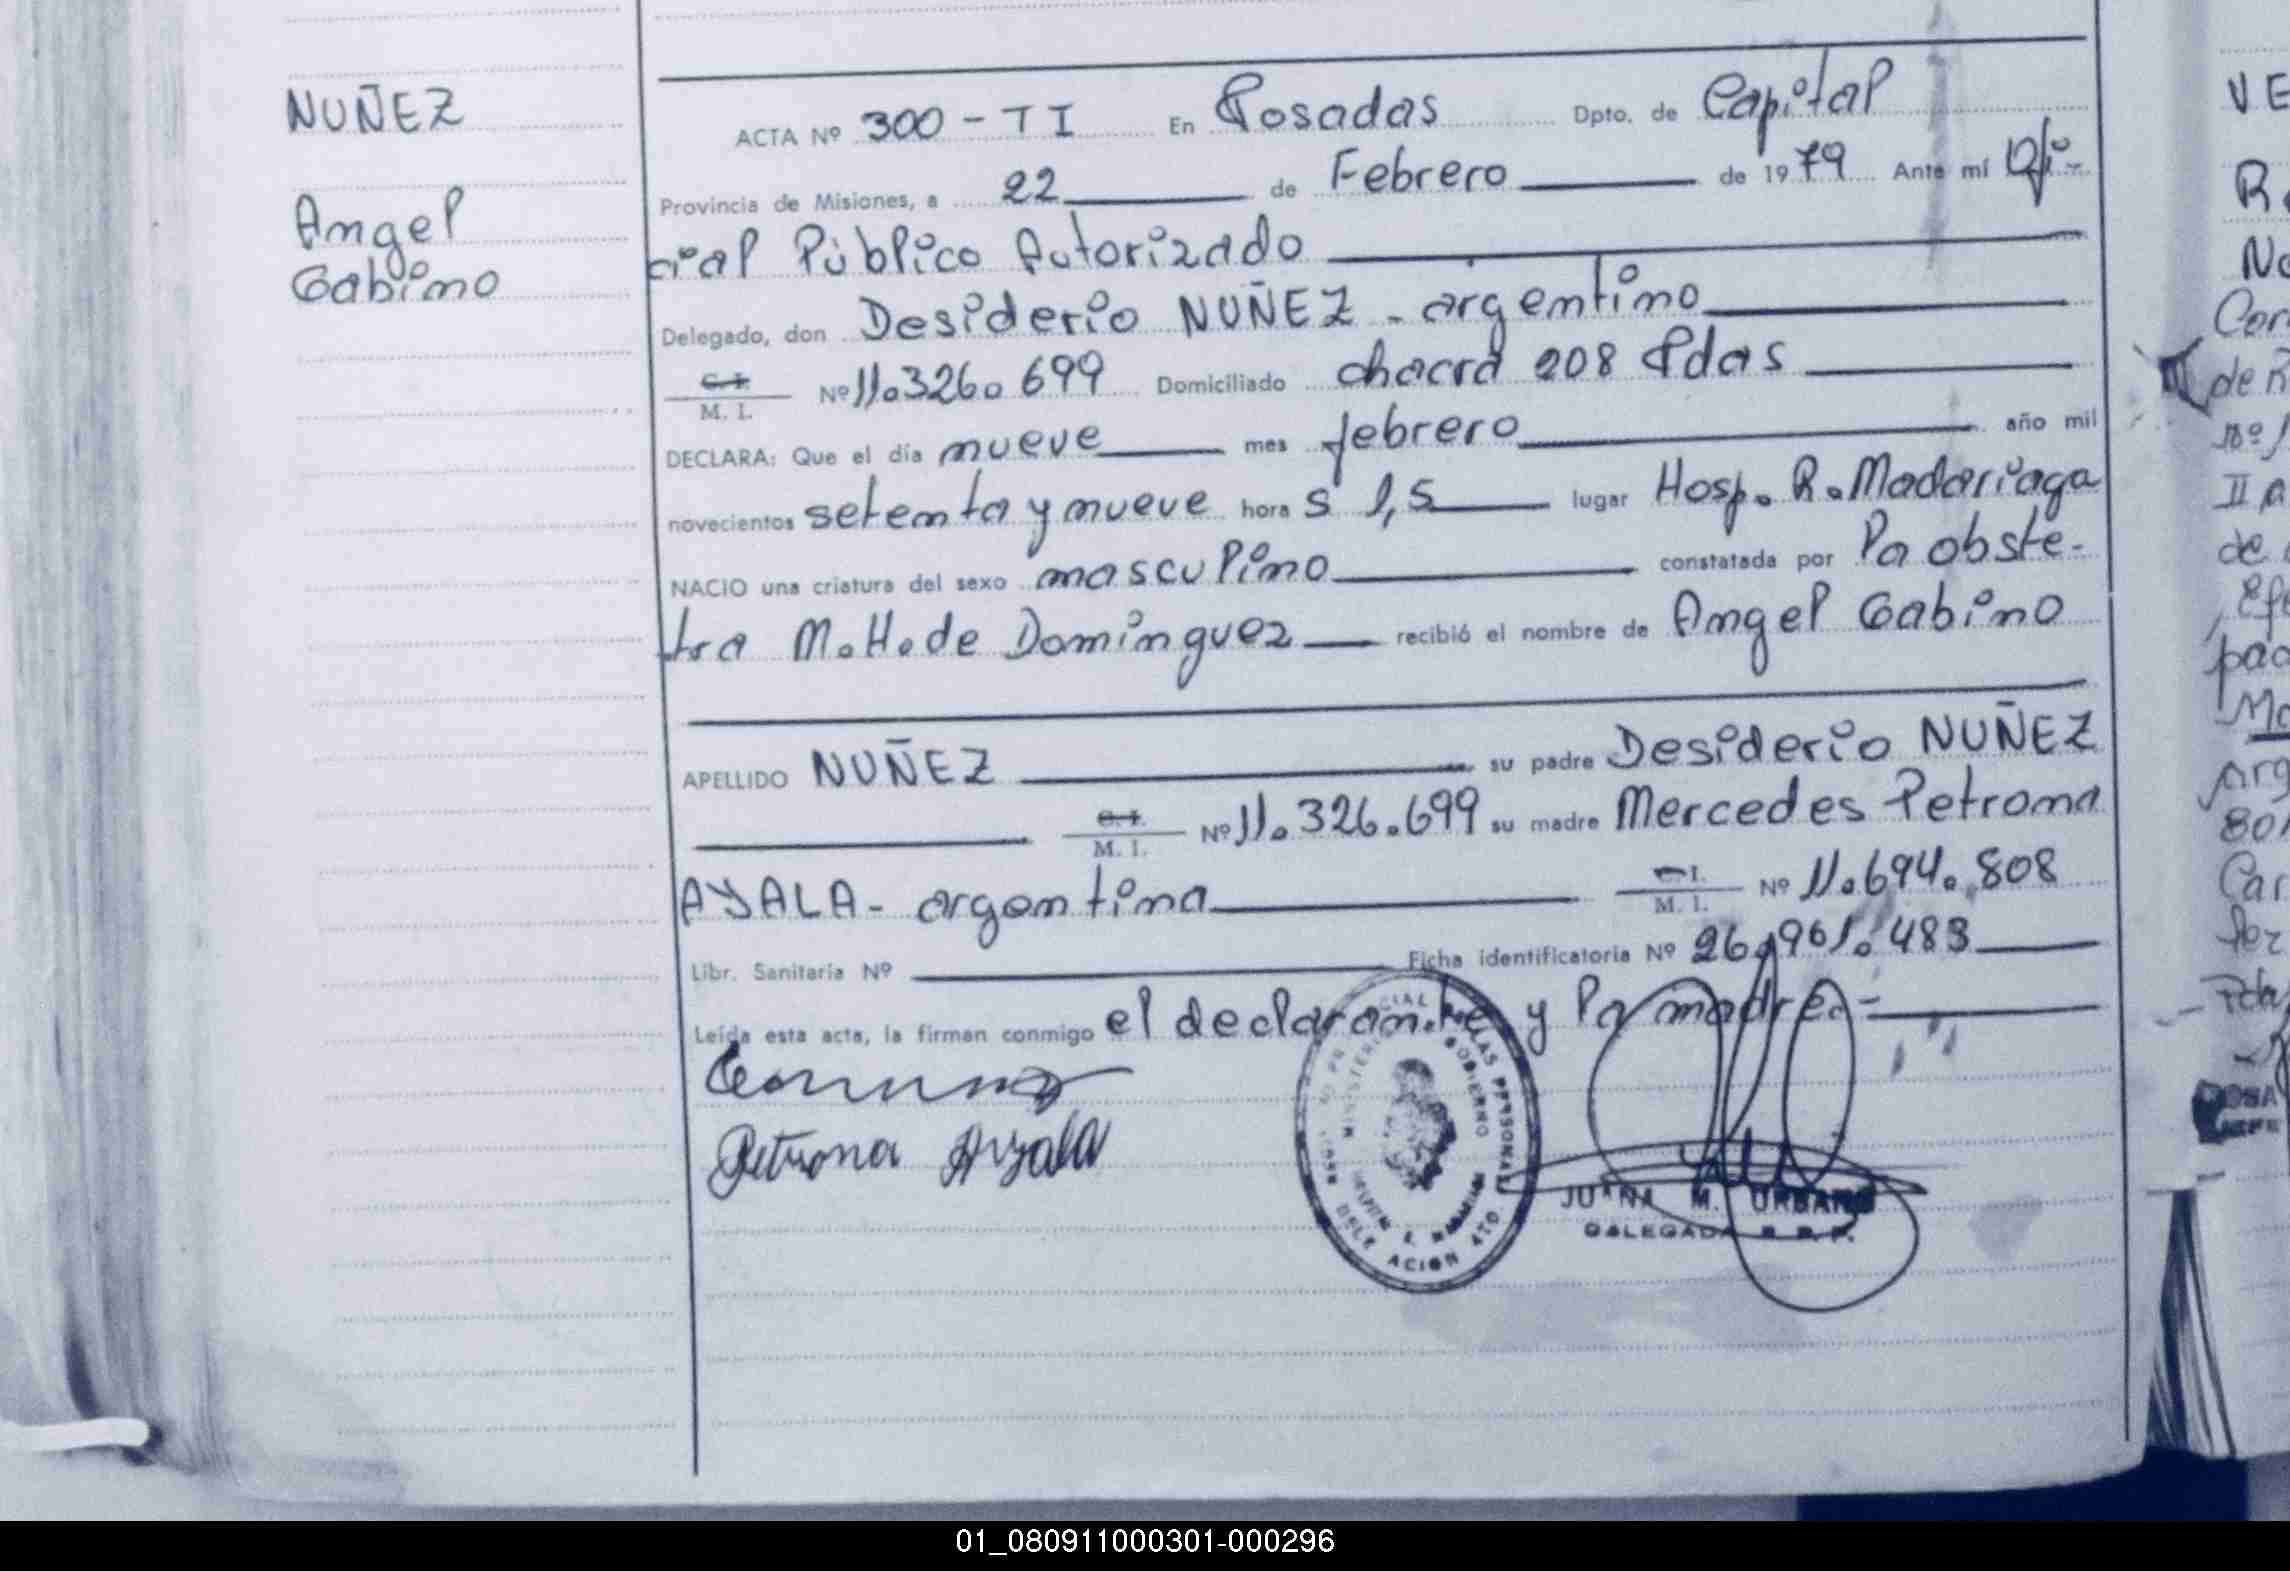 NUÑEZ
Angel
Gabino
ACTA Nº 300 - T I En Posadas Dpto. de Capital
Provincia de Misiones, a 22 de Febrero de 1979 Ante mí Ofi-
cial Público Autorizado
Delegado, don Desiderio NUÑEZ - argentino
C. I.
M. I. Nº 11.326.699 Domiciliado chacra 208 Pdas
DECLARA: Que el día nueve mes febrero año mil
novecientos setenta y nueve hora s 1,5 lugar Hosp. R. Madariaga
NACIO una criatura del sexo masculino constatada por la obste-
tra M. H. de Dominguez recibió el nombre de Angel Gabino
APELLIDO NUÑEZ su padre Desiderio NUÑEZ
C. I.
M. I. Nº 11.326.699 su madre Mercedes Petrona
AYALA - argentina I.
M. I. Nº 11.694.808
Libr. Sanitaria Nº Ficha identificatoria Nº 26.961.483
Leída esta acta, la firman conmigo el declarante y la madre.-
Petrona Ayala
MINISTERIO GOBIERNO
LAS PERSONAS
JUANA M. URBANO
DELEGADA R. P.
VE
No
Cor
de R
Nº 1
II
de
Efe
pad
Ma
arg
801
Car
ter
Pda
01_080911000301-000296